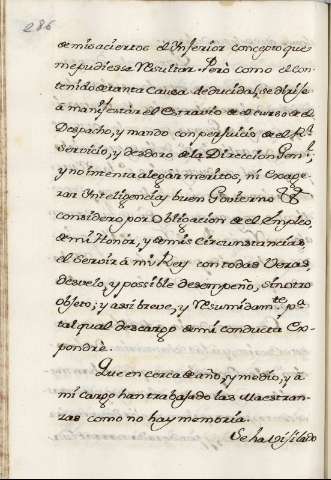 286
de mis aciertos el Inferior concepto que
me pudiesse resultar. Pero como el con-
tenido de tanta Causa deducida, se dirije
â manifestar el Extravio de el curso de el
Despacho, y mando con perjuicio de el Rl
Servicio, y desdoro de la Direccion Genl;
y no intenta alegar meritos, ni Exage-
rar Inteligencias, buen Govierno &c
considero por Obligacion de el Empleo,
de mi Honor, y de mis Circunstancias,
el Servir â mi Rey con todas Veras,
desvelo, y possible desempeño, sin otro
objeto; y assi breve, y resumidamte pa
tal qual descargo de mi conducta Ex-
pondrè.
Que en cerca de año, y medio, y â
mi cargo han trabajado las Maestran-
zas como no hay memoria.
Se ha